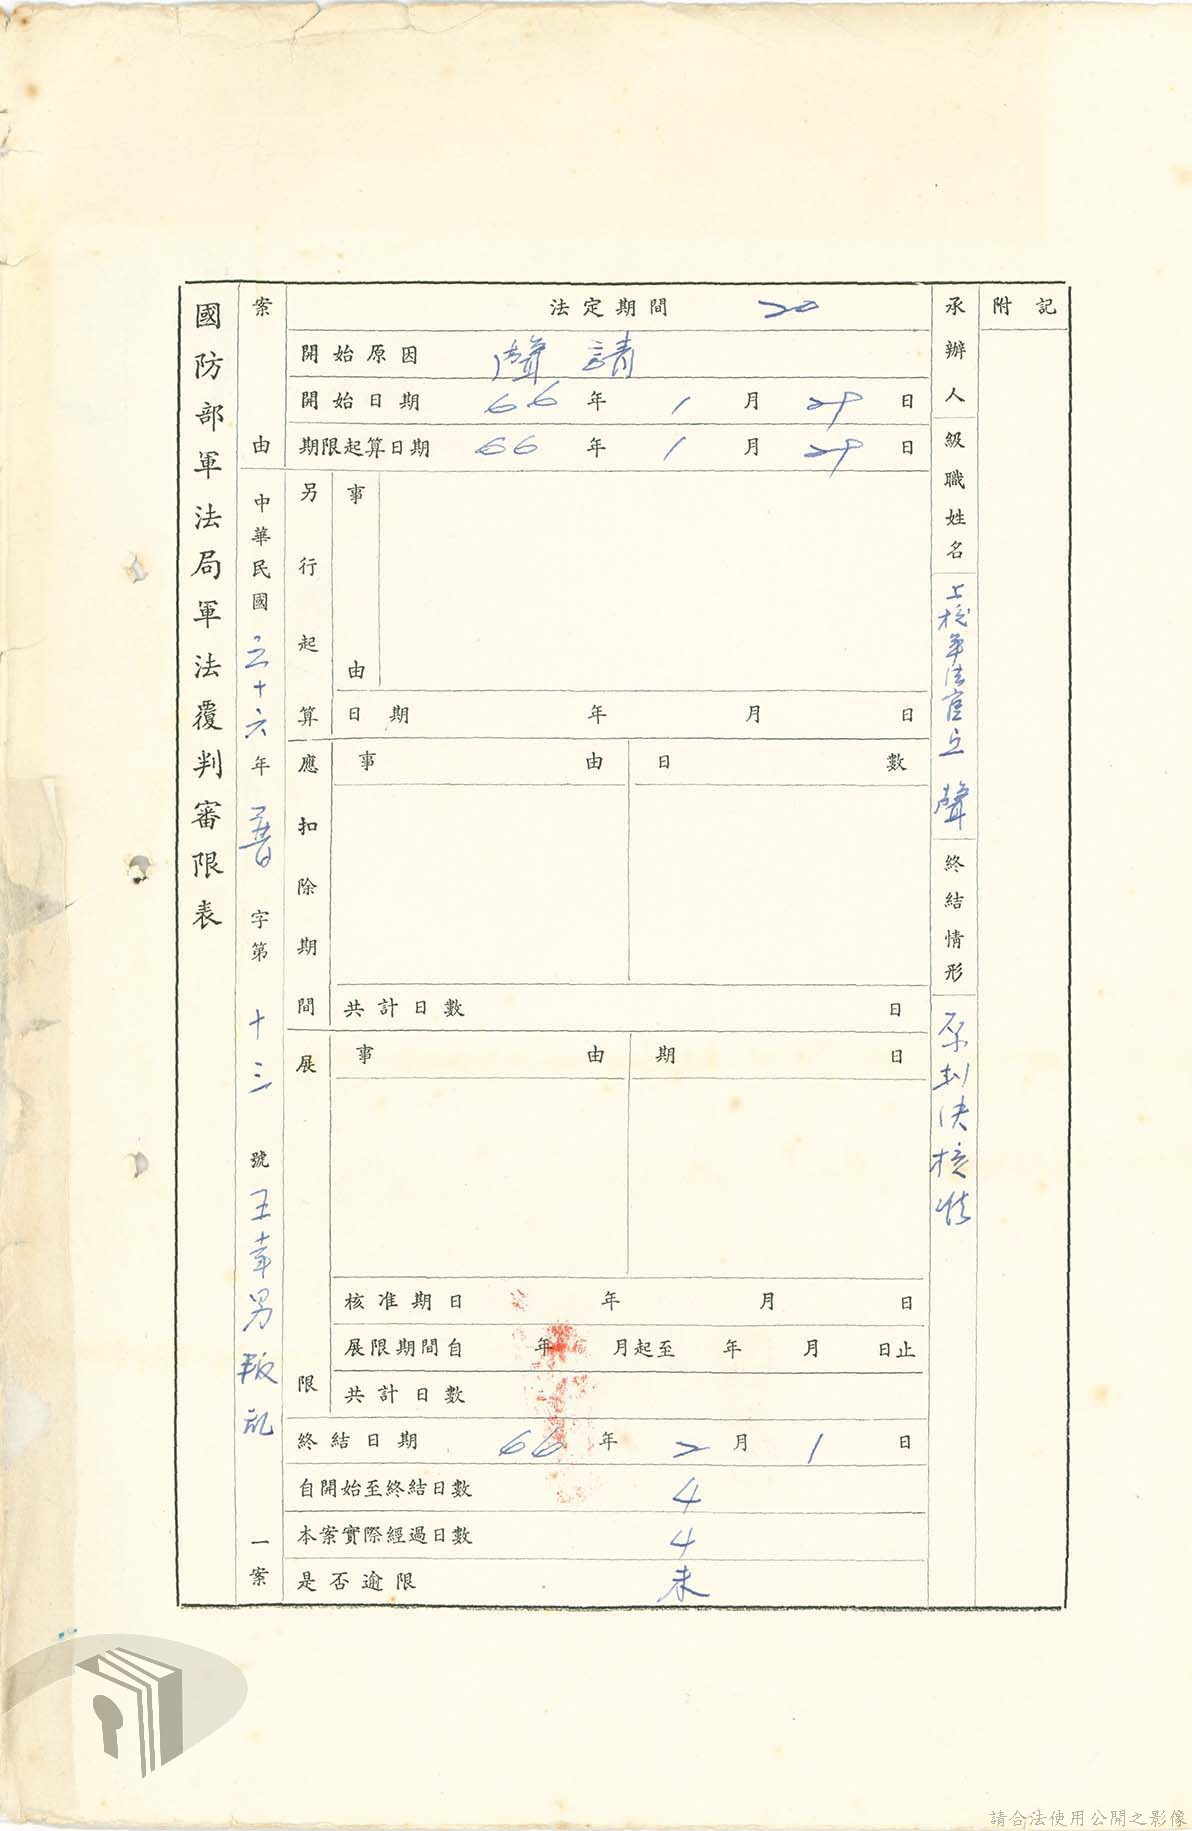 國防部軍法局軍法覆判審限表
案由
中華民國六十六年普字第十三號王幸男叛亂一案
法定期間 20
開始原因 聲請
開始日期 66年1月29日
期限起算日期 66年1月29日
另行起算
事由
日期 年 月 日
應扣除期間
事由 日數
共計日數 日
展限
事由 期日
核准期日 年 月 日
展限期間自 年 月起至 年 月 日止
共計日數
終結日期 66年2月1日
自開始至終結日數 4
本案實際經過日數 4
是否逾限 未
承辦人
級職姓名
上校軍法官 聲
終結情形
原判決核准
附記
請合法使用公開之影像